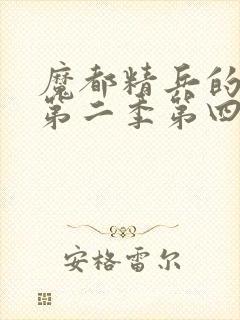 魔都精兵的
第二季第四
安格雷尔